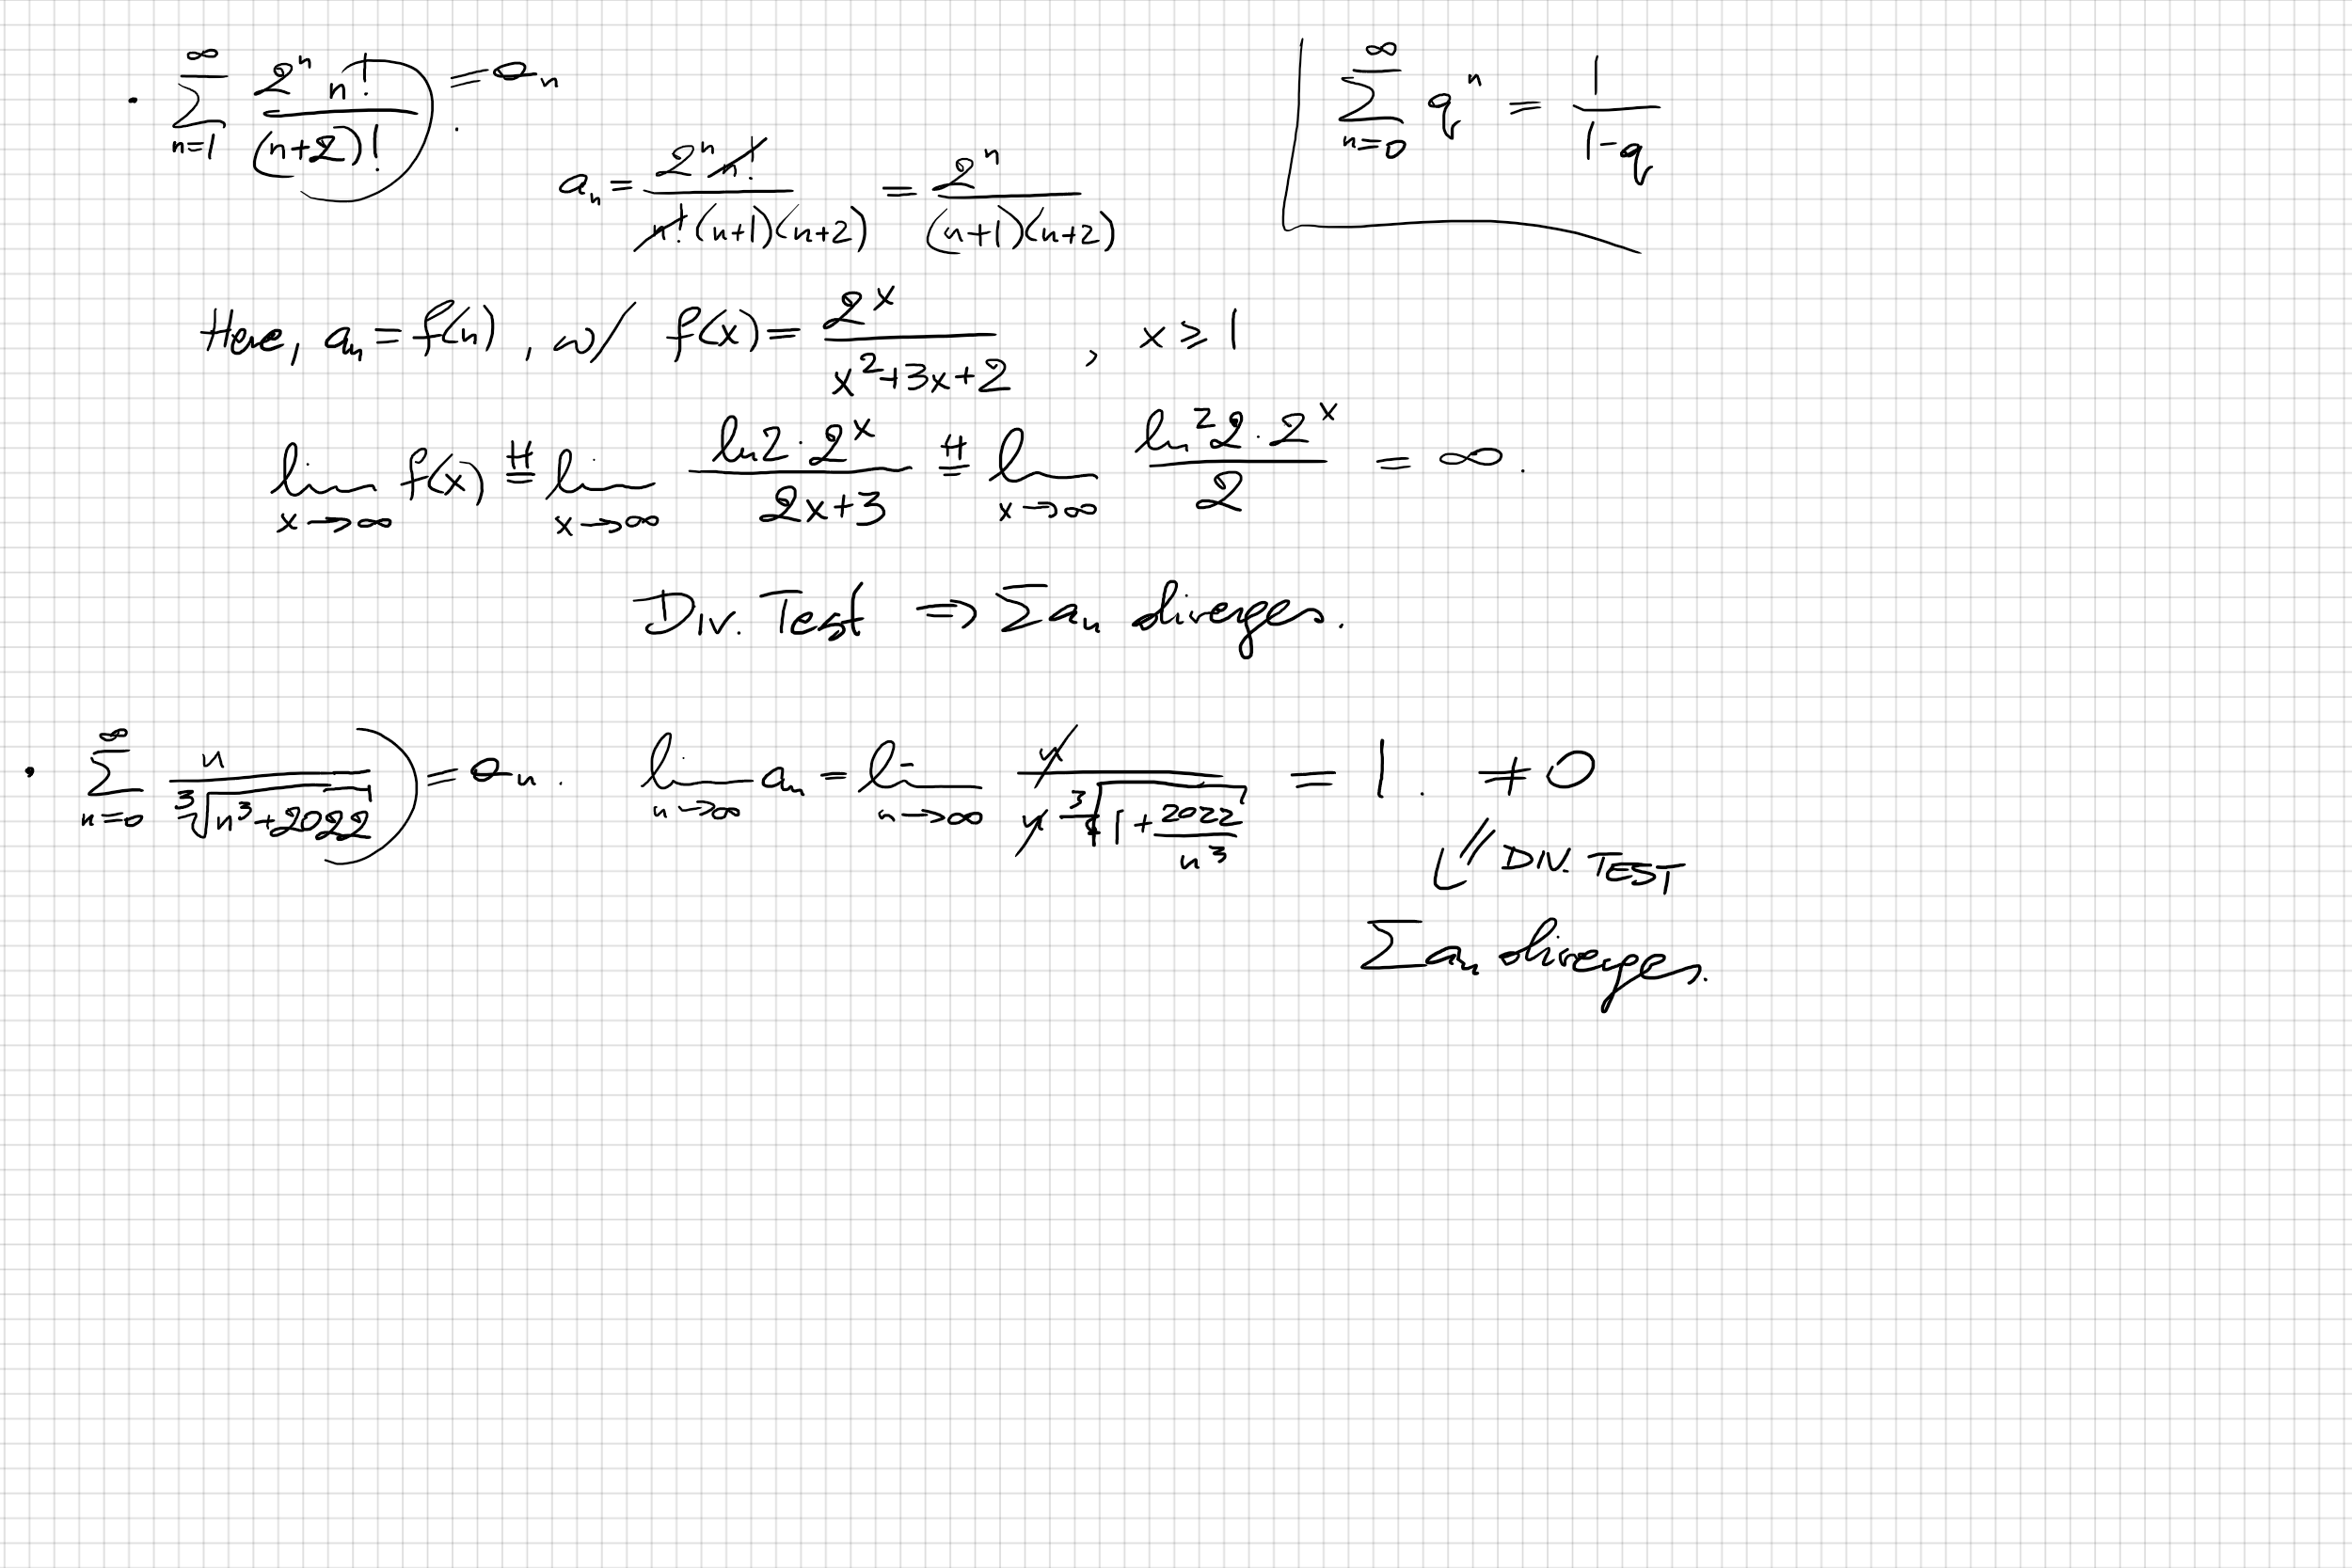 • ∑_{n=1}^{∞} 2^n n! / (n+2)! = a_n .
a_n = 2^n n! / n! (n+1)(n+2) = 2^n / (n+1)(n+2)
∑_{n=0}^{∞} q^n = 1 / 1-q
Here, a_n = f(n), w/ f(x) = 2^x / x^2+3x+2 , x ⩾ 1
lim_{x→∞} f(x) =^H lim_{x→∞} ln2 · 2^x / 2x+3 =^H lim_{x→∞} ln^2 2 · 2^x / 2 = ∞ .
Div. Test ⇒ ∑ a_n diverges.
• ∑_{n=0}^{∞} n / ∛(n^3+2022) = a_n . lim_{n→∞} a_n = lim_{n→∞} n / n ∛(1 + 2022/n^3) = 1 . ≠ 0
⇓ DIV. TEST
∑ a_n diverges.